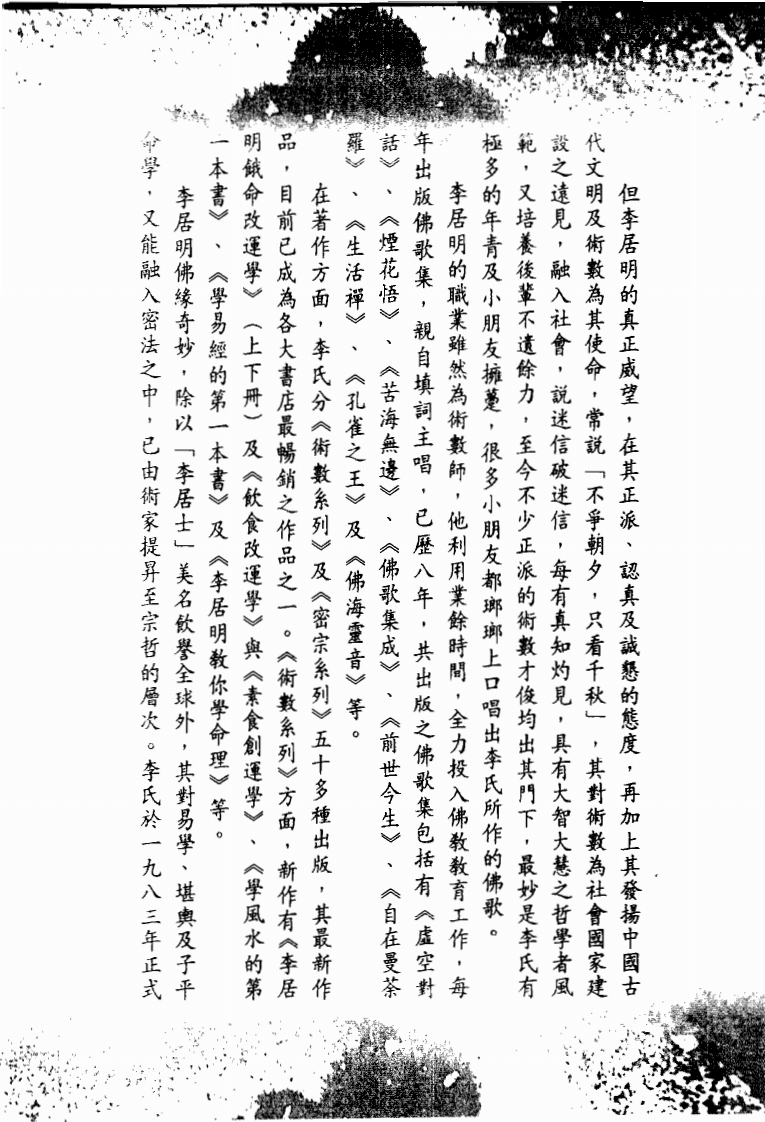 但李居明的真正威望，在其正派、認真及誠懇的態度，再加上其發揚中國古
代文明及術數為其使命，常說「不爭朝夕，只看千秋」，其對術數為社會國家建
設之遠見，融入社會，説迷信破迷信，每有真知灼見，具有大智大慧之哲學者風
範，又培養後輩不遺餘力，至今不少正派的術數才俊均出其門下，最妙是李氏有
極多的年青及小朋友擁躉，很多小朋友都瑯瑯上口唱出李氏所作的佛歌。
李居明的職業雖然為術數師，他利用業餘時間，全力投入佛教教育工作，每
年出版佛歌集，親自填詞主唱，已歷八年，共出版之佛歌集包括有《虛空對
話》、《煙花悟》、《苦海無邊》、《佛歌集成》、《前世今生》、《自在曼荼
羅》、《生活禪》、《孔雀之王》及《佛海靈音》等。
在著作方面，李氏分《術數系列》及《密宗系列》五十多種出版，其最新作
品，目前已成為各大書店最暢銷之作品之一。《術數系列》方面，新作有《李居
明餓命改運學》（上下冊）及《飲食改運學》與《素食創運學》、《學風水的第
一本書》、《學易經的第一本書》及《李居明教你學命理》等。
李居明佛緣奇妙，除以「李居士」美名飲譽全球外，其對易學、堪輿及子平
命學，又能融入密法之中，已由術家提昇至宗哲的層次。李氏於一九八三年正式